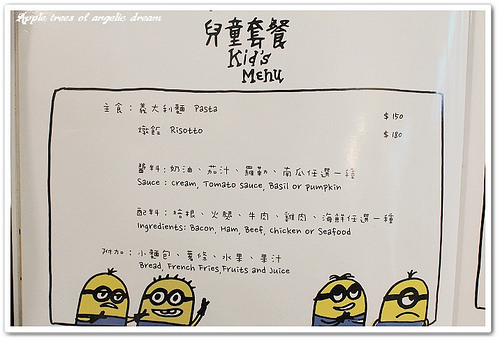 Apple trees of angelic dream
兒童套餐
Kid's
Menu
主食：義大利麵 Pasta $150
燉飯 Risotto $180
醬料：奶油、茄汁、羅勒、南瓜任選一種
Sauce : cream, Tomato sauce, Basil or pumpkin
配料：培根、火腿、牛肉、雞肉、海鮮任選一種
Ingredients: Bacon, Ham, Beef, chicken or Seafood
附加：小麵包、薯條、水果、果汁
Bread, French Fries,Fruits and Juice